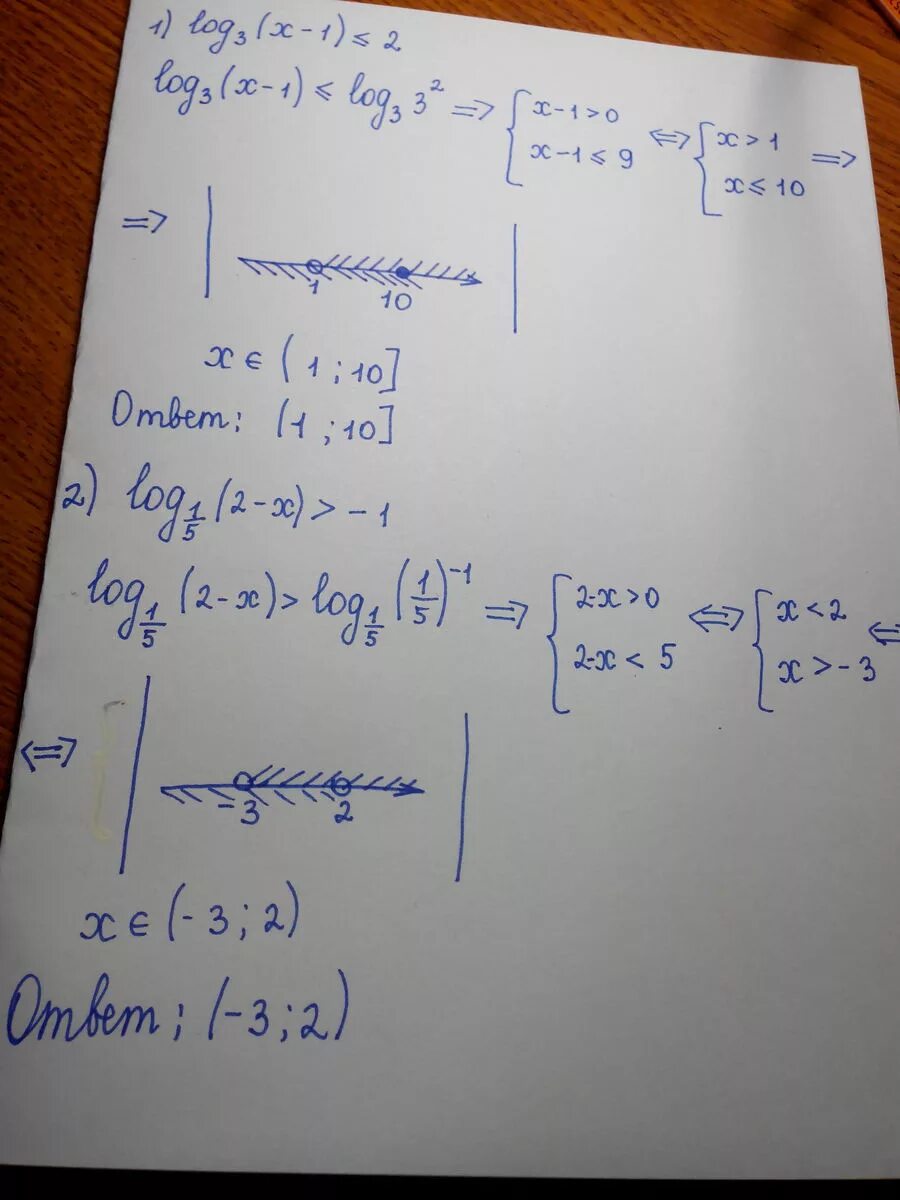 1) log₃(x-1) ≤ 2
log₃(x-1) ≤ log₃ 3² => { x-1>0 <=> { x>1 =>
x-1 ≤ 9 x ≤ 10
=>
1 10
x ∈ (1 ; 10]
Ответ: (1 ; 10]
2) log_{1/5} (2-x) > -1
log_{1/5} (2-x) > log_{1/5} (1/5)⁻¹ => { 2-x>0 <=> { x<2 <=
2-x < 5 x > -3
<=>
-3 2
x ∈ (-3 ; 2)
Ответ: (-3 ; 2)